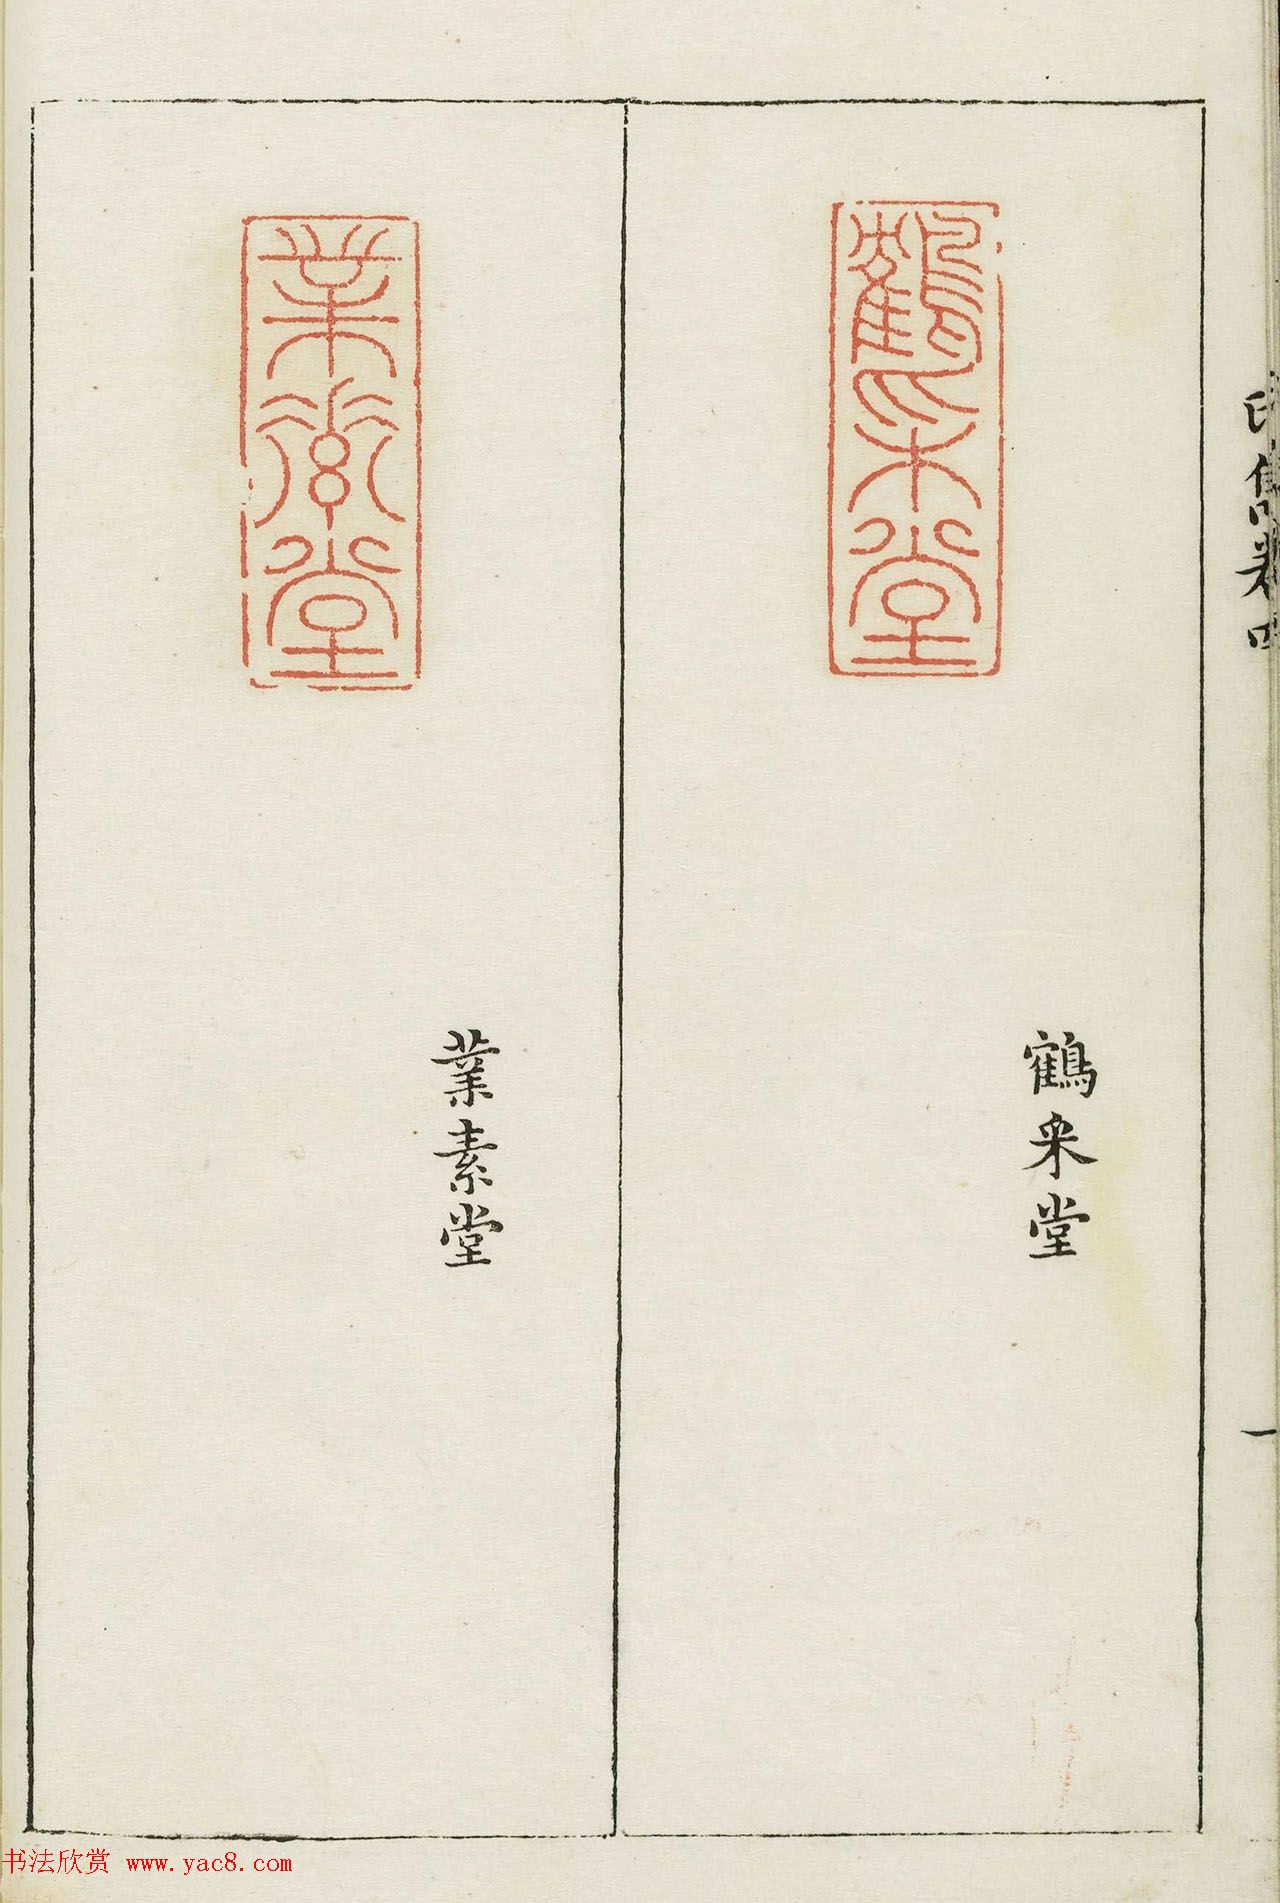 鶴采堂
鶴采堂
業素堂
業素堂
一
书法欣赏 www.yac8.com